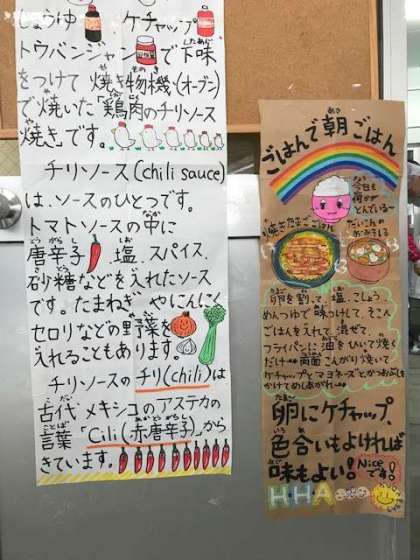 しょうゆ、ケチャップ、
トウバンジャンで下味
をつけて焼き物機(オーブン)
で焼いた「鶏肉のチリソース
焼き」です。
チリソース(chili sauce)
は、ソースのひとつです。
トマトソースの中に
唐辛子、塩、スパイス、
砂糖などを入れたソース
です。たまねぎやにんにく
セロリなどの野菜を
入れることもあります。
チリソースのチリ(chili)は
古代メキシコのアステカの
言葉「Cili(赤唐辛子)」から
きています。
ごはんで朝ごはん
今日も
何かが
とんでいる〜
焼きたまごごはん
だいこんの
おみそしる
卵を割って、塩、こしょう
めんつゆで味つけして、そこへ
ごはんを入れて、混ぜて、
フライパンに油をひいて焼く
だけ…両面こんがり焼いて
ケチャップとマヨネーズとかつおぶしを
かけてめしあがれ…
卵にケチャップ、
色合いもよければ
味もよい!
Nice
です!
H・H・A